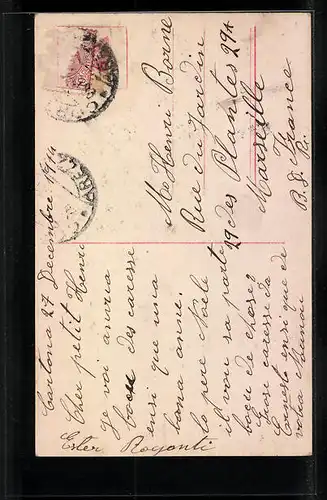 Cartona 27 Decembre 1914
Cher petit Henri
Je voi anvoia
bocu des caresse
ensi que una
bana anne.
lo pere Noele
il voi sa parte
bocu de chose?
Grosi caresse da
Ernesto ensi que de
votra
Ester Rogonti
Mr Henri Borne
Rue du Jardin
29 des Plantes 29A
Marseille
France
B. d. R.